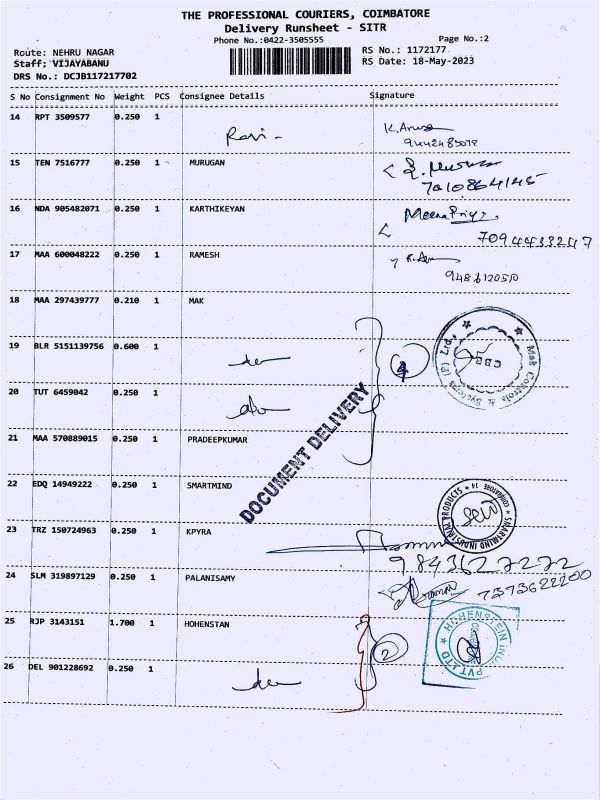 THE PROFESSIONAL COURIERS, COIMBATORE
Delivery Runsheet - SITR
Phone No.:0422-3505555 Page No.:2
Route: NEHRU NAGAR RS No.: 1172177
Staff; VIJAYABANU RS Date: 18-May-2023
DRS No.: DCJB117217702
S No Consignment No Weight PCS Consignee Details Signature
14 RPT 3509577 0.250 1 Ravi-
15 TEN 7516777 0.250 1 MURUGAN
7010864145
16 NDA 905482071 0.250 1 KARTHIKEYAN Meena Priya
7094433247
17 MAA 600048222 0.250 1 RAMESH
18 MAA 297439777 0.210 1 MAK
19 BLR 5151139756 0.600 1
4
Mak Controls & Systems (P) Ltd.,
CBE
20 TUT 6459042 0.250 1
DOCUMENT DELIVERY
21 MAA 570889015 0.250 1 PRADEEPKUMAR
22 EDQ 14949222 0.250 1 SMARTMIND
SMARTMIND INDUSTRIAL PRODUCTS
COIMBATORE 14
23 TRZ 150724963 0.250 1 KPYRA
9843627272
24 SLM 319897129 0.250 1 PALANISAMY
7373622200
25 RJP 3143151 1.700 1 HOHENSTAN
2
HOHENSTEIN
PVT LTD
26 DEL 901228692 0.250 1